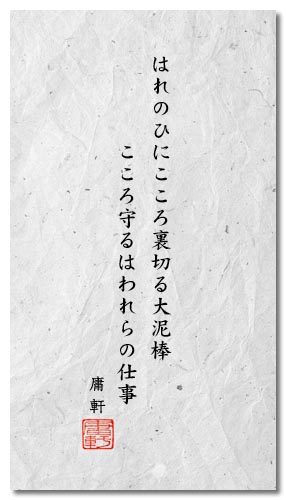 はれのひにこころ裏切る大泥棒
こころ守るはわれらの仕事
庸軒
庸軒